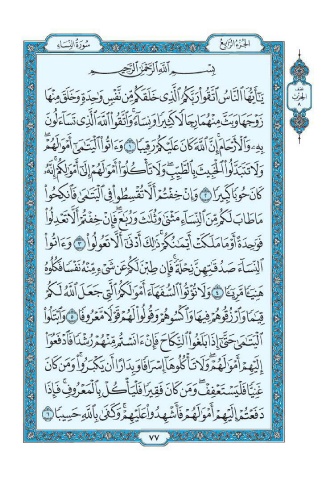 سُورَةُ النِّسَاءِ
الجُزْءُ الرَّابِعُ
بِسْمِ اللَّهِ الرَّحْمَٰنِ الرَّحِيمِ
يَٰٓأَيُّهَا ٱلنَّاسُ ٱتَّقُوا۟ رَبَّكُمُ ٱلَّذِى خَلَقَكُم مِّن نَّفْسٍ وَٰحِدَةٍ وَخَلَقَ مِنْهَا
زَوْجَهَا وَبَثَّ مِنْهُمَا رِجَالًا كَثِيرًا وَنِسَآءً وَٱتَّقُوا۟ ٱللَّهَ ٱلَّذِى تَسَآءَلُونَ
بِهِۦ وَٱلْأَرْحَامَ إِنَّ ٱللَّهَ كَانَ عَلَيْكُمْ رَقِيبًا ١ وَءَاتُوا۟ ٱلْيَتَٰمَىٰٓ أَمْوَٰلَهُمْ
وَلَا تَتَبَدَّلُوا۟ ٱلْخَبِيثَ بِٱلطَّيِّبِ وَلَا تَأْكُلُوٓا۟ أَمْوَٰلَهُمْ إِلَىٰٓ أَمْوَٰلِكُمْ إِنَّهُۥ
كَانَ حُوبًا كَبِيرًا ٢ وَإِنْ خِفْتُمْ أَلَّا تُقْسِطُوا۟ فِى ٱلْيَتَٰمَىٰ فَٱنكِحُوا۟
مَا طَابَ لَكُم مِّنَ ٱلنِّسَآءِ مَثْنَىٰ وَثُلَٰثَ وَرُبَٰعَ فَإِنْ خِفْتُمْ أَلَّا تَعْدِلُوا۟
فَوَٰحِدَةً أَوْ مَا مَلَكَتْ أَيْمَٰنُكُمْ ذَٰلِكَ أَدْنَىٰٓ أَلَّا تَعُولُوا۟ ٣ وَءَاتُوا۟
ٱلنِّسَآءَ صَدُقَٰتِهِنَّ نِحْلَةً فَإِن طِبْنَ لَكُمْ عَن شَىْءٍ مِّنْهُ نَفْسًا فَكُلُوهُ
هَنِيٓـًٔا مَّرِيٓـًٔا ٤ وَلَا تُؤْتُوا۟ ٱلسُّفَهَآءَ أَمْوَٰلَكُمُ ٱلَّتِى جَعَلَ ٱللَّهُ لَكُمْ
قِيَٰمًا وَٱرْزُقُوهُمْ فِيهَا وَٱكْسُوهُمْ وَقُولُوا۟ لَهُمْ قَوْلًا مَّعْرُوفًا ٥ وَٱبْتَلُوا۟
ٱلْيَتَٰمَىٰ حَتَّىٰٓ إِذَا بَلَغُوا۟ ٱلنِّكَاحَ فَإِنْ ءَانَسْتُم مِّنْهُمْ رُشْدًا فَٱدْفَعُوٓا۟
إِلَيْهِمْ أَمْوَٰلَهُمْ وَلَا تَأْكُلُوهَآ إِسْرَافًا وَبِدَارًا أَن يَكْبَرُوا۟ وَمَن كَانَ
غَنِيًّا فَلْيَسْتَعْفِفْ وَمَن كَانَ فَقِيرًا فَلْيَأْكُلْ بِٱلْمَعْرُوفِ فَإِذَا
دَفَعْتُمْ إِلَيْهِمْ أَمْوَٰلَهُمْ فَأَشْهِدُوا۟ عَلَيْهِمْ وَكَفَىٰ بِٱللَّهِ حَسِيبًا ٦
٧٧